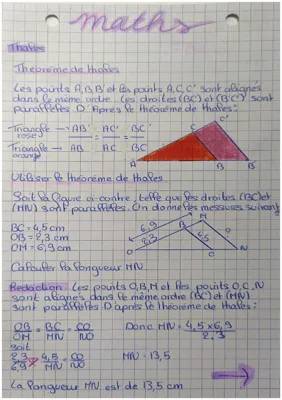 maths
Thalès
Théorème de thalès
Les points A,B,B' et les points A,C,C' sont alignés
dans le même ordre. Les droites (BC) et (B'C') sont
parallèles. D'après le théorème de thalès:
Triangle rose → AB' = AC' = BC'
Triangle orange → AB AC BC
A B B' C C'
Utiliser le théorème de thalès
Soit la figure ci-contre, telle que les droites (BC) et
(MN) sont parallèles. On donne les messures suivant
BC = 4,5 cm
OB = 2,3 cm
OM = 6,9 cm
6,9 2,3 4,5 B M O C N
Calculer la longueur MN.
Rédaction: Les points O,B,M et les points O,C,N
sont alignés dans le même ordre (BC) et (MN)
sont parallèles D'après le théorème de thalès:
OB = BC = CO Donc MN = 4,5 x 6,9
OM MN NO 2,3
soit
2,3 4,5 = CO MN = 13,5
6,9 MN NO
La longueur MN est de 13,5 cm